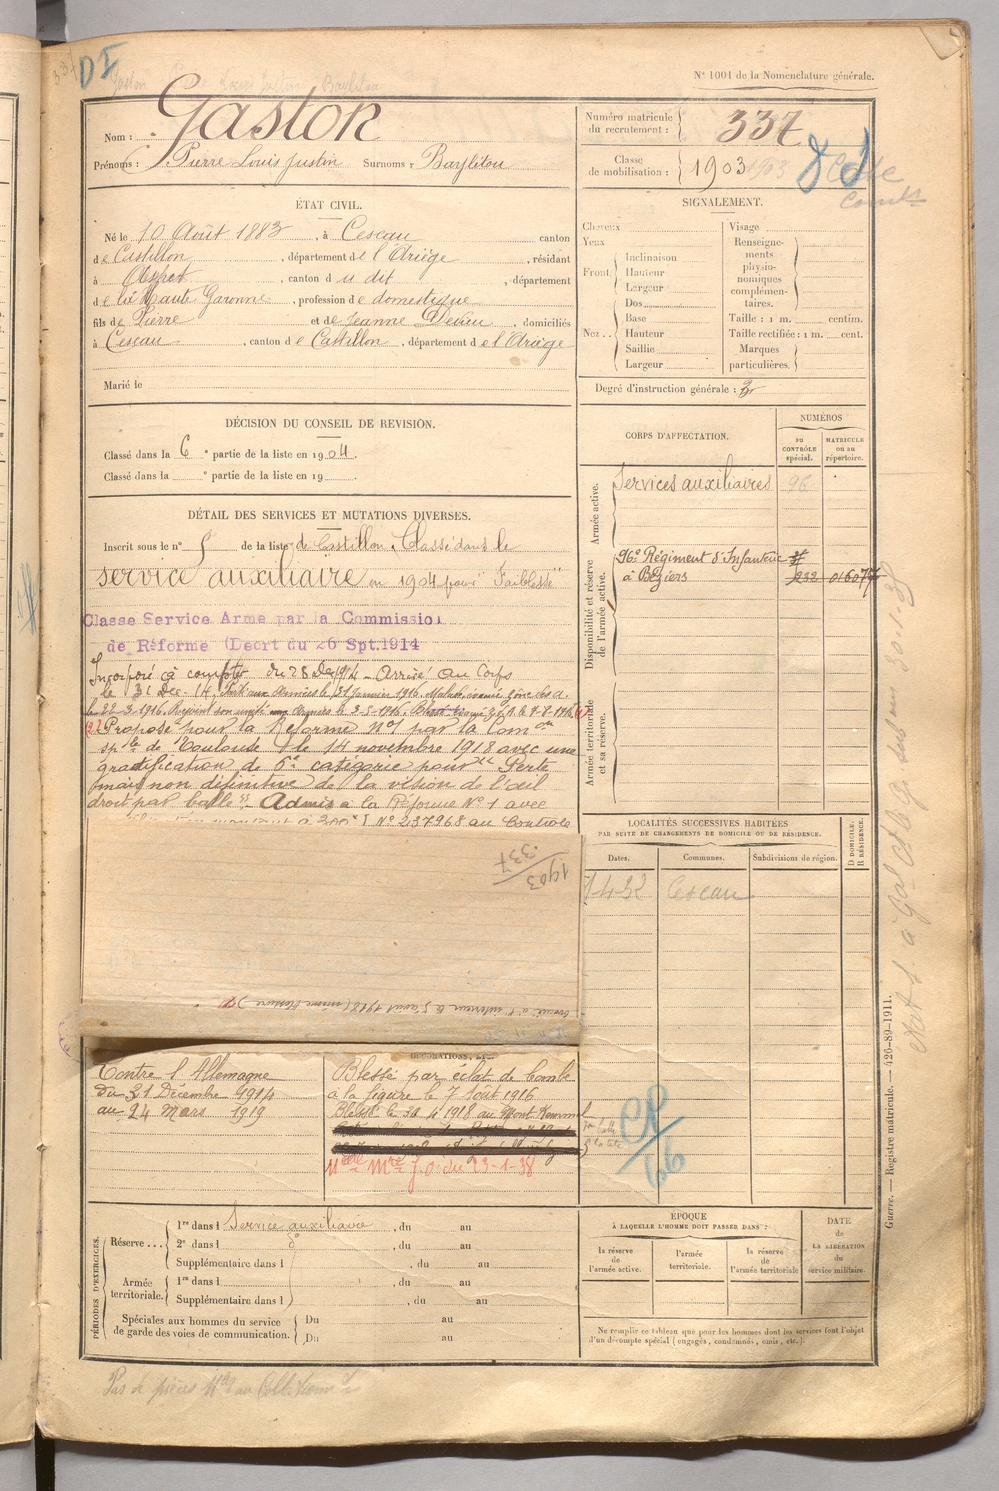 D I
N° 1001 de la Nomenclature générale.
Nom : Gaston
Prénoms : Pierre Louis Justin Surnoms : Baylitou
Numéro matricule du recrutement : 337
Classe de mobilisation : 1903
ÉTAT CIVIL.
Né le 10 Août 1883, à Cescau canton
de Castillon, département de l'Ariège, résidant
à Aspet, canton du dit, département
de la Haute Garonne, profession de domestique
fils de Pierre et de Jeanne, domiciliés
à Cescau, canton de Castillon, département de l'Ariège
Marié le
SIGNALEMENT.
Cheveux
Yeux
Front
Inclinaison
Hauteur
Largeur
Nez
Dos
Base
Hauteur
Saillie
Largeur
Visage
Renseignements physionomiques complémentaires.
Taille : 1 m. centim.
Taille rectifiée : 1 m. cent.
Marques particulières.
Degré d'instruction générale :
DÉCISION DU CONSEIL DE REVISION.
Classé dans la 6 e partie de la liste en 1904.
Classé dans la e partie de la liste en 19
DÉTAIL DES SERVICES ET MUTATIONS DIVERSES.
Inscrit sous le n° 5 de la liste de Castillon. Classé dans le
service auxiliaire en 1904 pour "Faiblesse"
Classe Service Arme par la Commission
de Réforme (Decrt du 26 Spt. 1914
Incorporé à compter du 28 Dec 1914 - Arrivé au Corps
le 31 Dec. 14. Parti aux Armées le 21 Janvier 1916. Malade, évacué zône des a.
le 22-3-1916. Rejoint son unité aux Armées le 3-5-1916.
(2) Proposé pour la Réforme N°1 par la Com on
sp le de Toulouse le 14 novembre 1918 avec une
gratification de 6e catégorie pour "Perte
(mais non définitive) de la vision de l'œil
droit par balle". Admis à la Réforme N° 1 avec
N° 237968 au Contrôle
1903
337
évacué à l'intérieur le 5 août 1918 (même blessure)
CORPS D'AFFECTATION.
NUMÉROS
DU CONTRÔLE spécial.
MATRICULE ou au répertoire.
Armée active.
Services auxiliaires 96
Disponibilité et réserve de l'armée active.
96e Régiment d'Infanterie
à Béziers
Armée territoriale et sa réserve.
LOCALITÉS SUCCESSIVES HABITÉES
PAR SUITE DE CHANGEMENTS DE DOMICILE OU DE RÉSIDENCE.
Dates. Communes. Subdivisions de région. D DOMICILE. R RÉSIDENCE.
1-4-32 Cescau
DÉCORATIONS, ETC.
Contre l'Allemagne
Du 31 Décembre 1914
au 24 Mars 1919
Blessé par éclat de bombe
à la figure le 7 Août 1916
Blessé le 30 4 1918 au Mont Kemmel
Mre J.O. du 23-1-38
CR
66
PÉRIODES D'EXERCICES.
Réserve
1re dans l Service auxiliaire, du au
2e dans l do, du au
Supplémentaire dans l
Armée territoriale.
1re dans l, du au
Supplémentaire dans l, du au
Spéciales aux hommes du service de garde des voies de communication.
Du au
Du au
ÉPOQUE
À LAQUELLE L'HOMME DOIT PASSER DANS :
la réserve de l'armée active.
l'armée territoriale.
la réserve de l'armée territoriale
DATE de LA LIBÉRATION du service militaire.
Ne remplir ce tableau que pour les hommes dont les services font l'objet
d'un décompte spécial (engagés, condamnés, omis, etc.).
Guerre. — Registre matricule. — 426-89-1911.